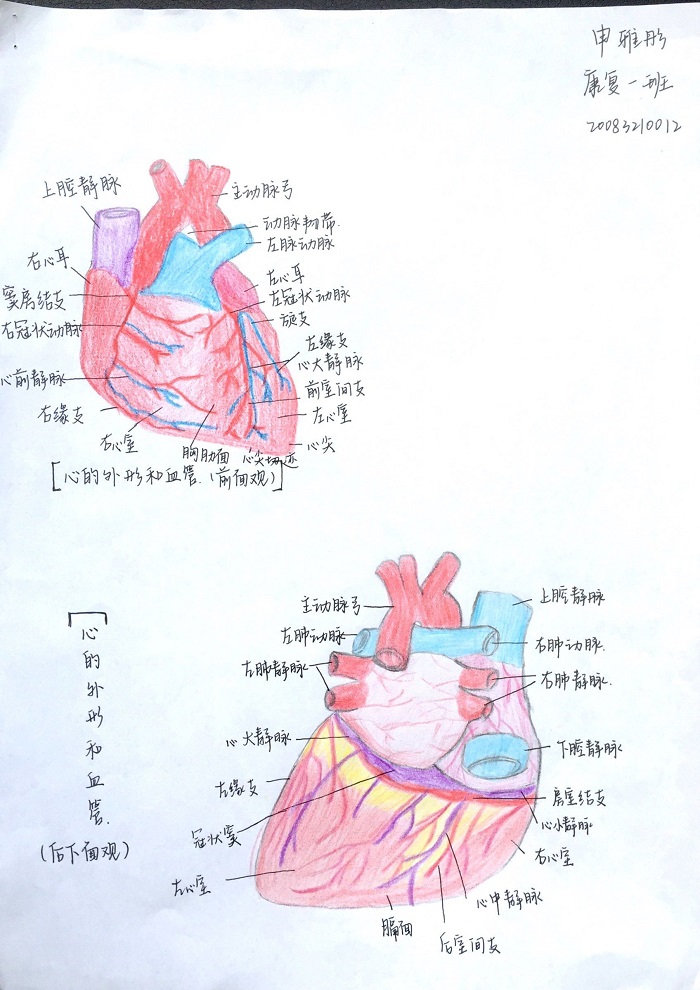 申雅彤
康复一班
20083210012
上腔静脉
主动脉弓
动脉韧带.
左脉动脉
右心耳
左心耳
窦房结支
左冠状动脉
旋支
右冠状动脉
左缘支
心大静脉
心前静脉
前室间支
右缘支
左心室
右心室
胸肋面
心尖切迹
心尖
[心的外形和血管.(前面观)]
主动脉弓
上腔静脉
左肺动脉
右肺动脉.
左肺静脉
右肺静脉.
心大静脉
下腔静脉
左缘支
房室结支
冠状窦
心小静脉
右心室
左心室
心中静脉
膈面
后室间支
心的外形和血管.
(后下面观)